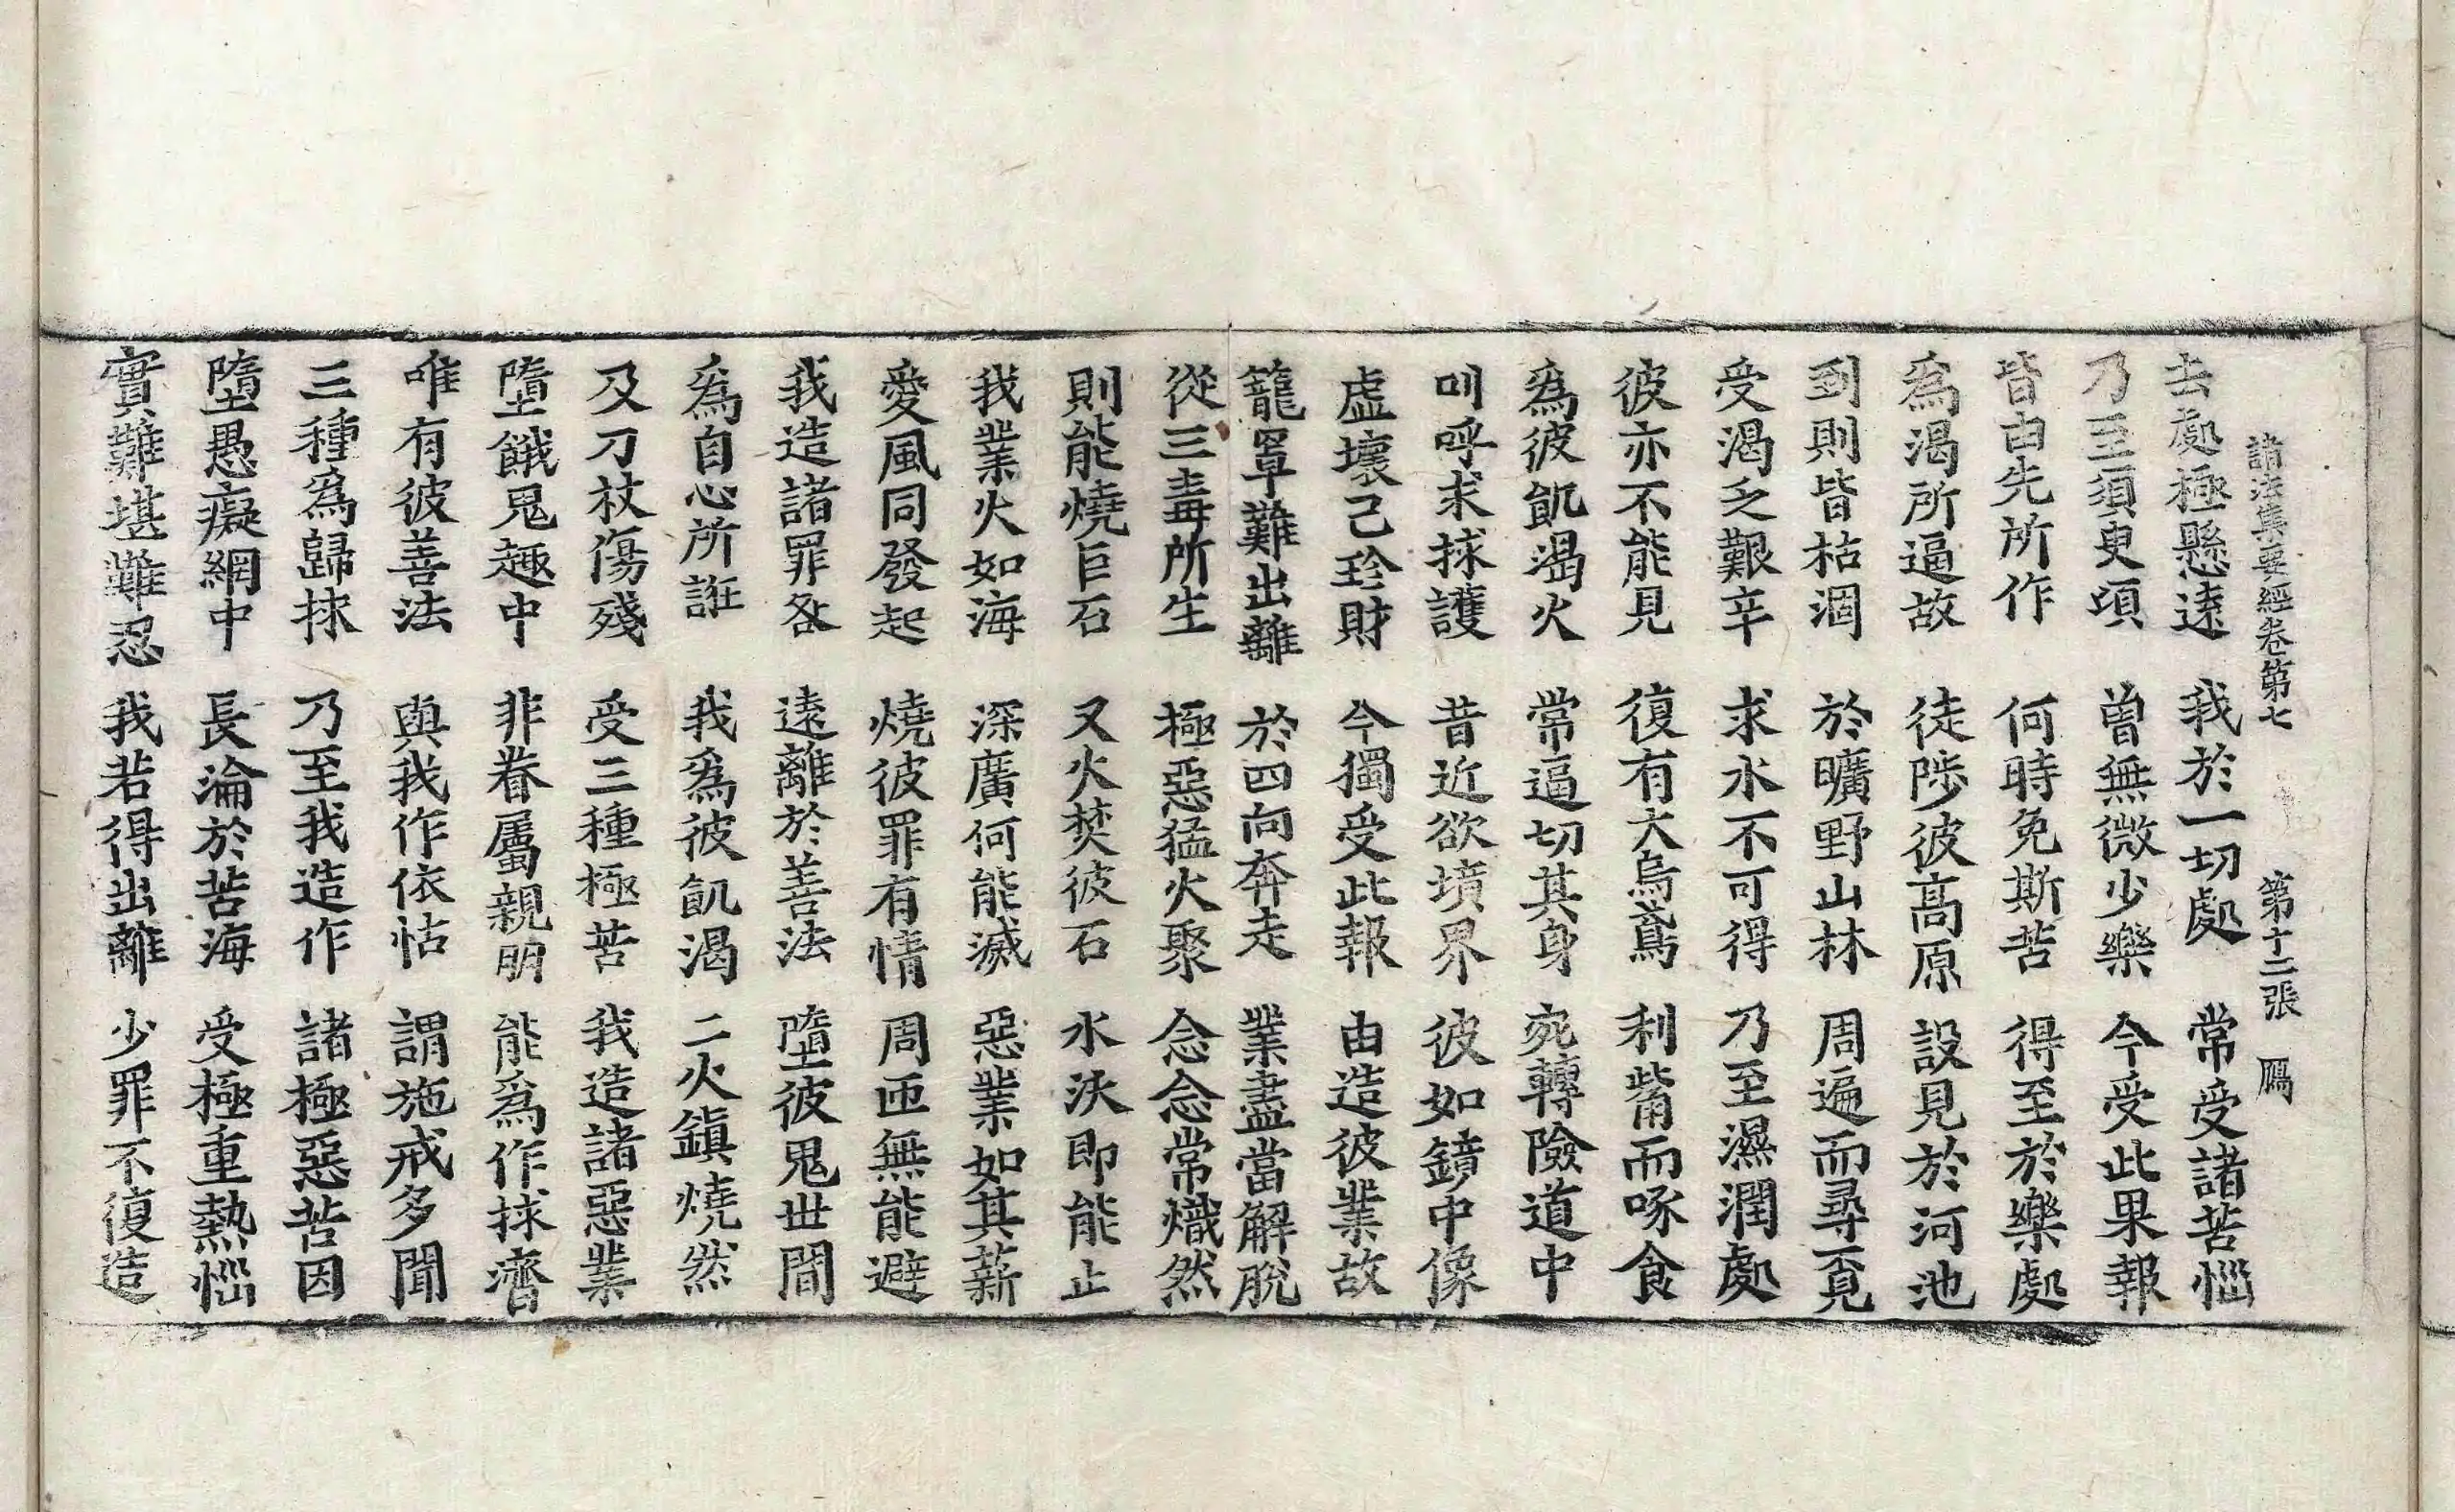 諸法集要經卷第七 第十二張 鴈
去處極懸遠 我於一切處 常受諸苦惱
乃至須臾頃 曾無微少樂 今受此果報
皆由先所作 何時免斯苦 得至於樂處
爲渴所逼故 徒陟彼高原 設見於河池
到則皆枯涸 於曠野山林 周遍而尋覓
受渴乏艱辛 求水不可得 乃至濕潤處
彼亦不能見 復有大烏鳶 利觜而啄食
爲彼飢渴火 常逼切其身 宛轉險道中
叫呼求捄護 昔近欲墳界 彼如鏡中像
虛壞己珍財 今獨受此報 由造彼業故
籠罩難出離 於四向奔走 業盡當解脫
從三毒所生 極惡猛火聚 念念常熾然
則能燒巨石 又火焚彼石 水沃即能止
我業火如海 深廣何能滅 惡業如其薪
愛風同發起 燒彼罪有情 周匝無能避
我造諸罪咎 遠離於善法 墮彼鬼世間
爲自心所誑 我爲彼飢渴 二火鎭燒然
及刀杖傷殘 受三種極苦 我造諸惡業
墮餓鬼趣中 非眷屬親朋 能爲作捄濟
唯有彼善法 與我作依怙 謂施戒多聞
三種爲歸捄 乃至我造作 諸極惡苦因
墮愚癡網中 長淪於苦海 受極重熱惱
實難堪難忍 我若得出離 少罪不復造